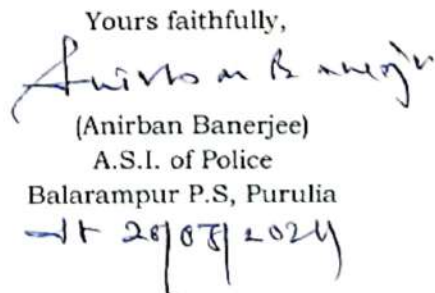 Yours faithfully,
Anirban Banerjee
(Anirban Banerjee)
A.S.I. of Police
Balarampur P.S, Purulia